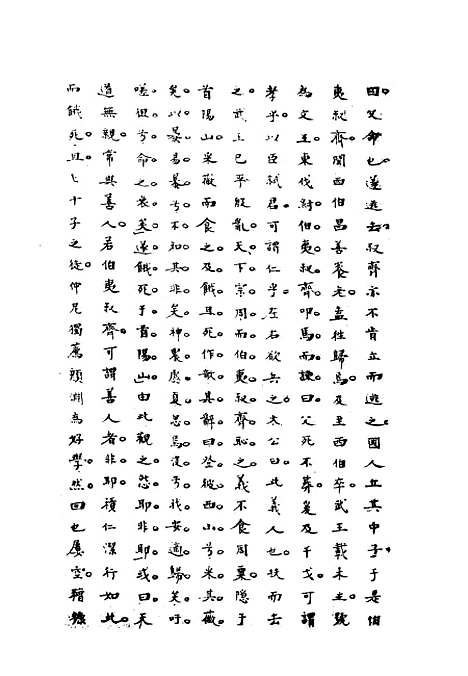 曰。父命也。遂逃去。叔齊亦不肯立而逃之。國人立其中子。于是伯
夷叔齊。聞西伯昌善養老。盍往歸焉。及至西伯卒。武王載木主。號
為文王。東伐紂。伯夷叔齊。叩馬而諫曰。父死不葬。爰及干戈。可謂
孝乎。以臣弑君。可謂仁乎。左右欲兵之。太公曰。此義人也。扶而去
之。武王已平殷亂。天下宗周。而伯夷叔齊恥之。義不食周粟。隱于
首陽山。采薇而食之。及餓且死。作歌。其辭曰。登彼西山兮。采其薇
矣。以暴易暴兮。不知其非矣。神農虞夏忽焉沒兮。我安適歸矣。吁
嗟徂兮。命之衰矣。遂餓死于首陽山。由此觀之。怨耶非耶。或曰。天
道無親。常與善人。若伯夷叔齊。可謂善人者。非耶。積仁潔行如此。
而餓死。且七十子之徒。仲尼獨薦顏淵為好學。然回也屢空。糟糠